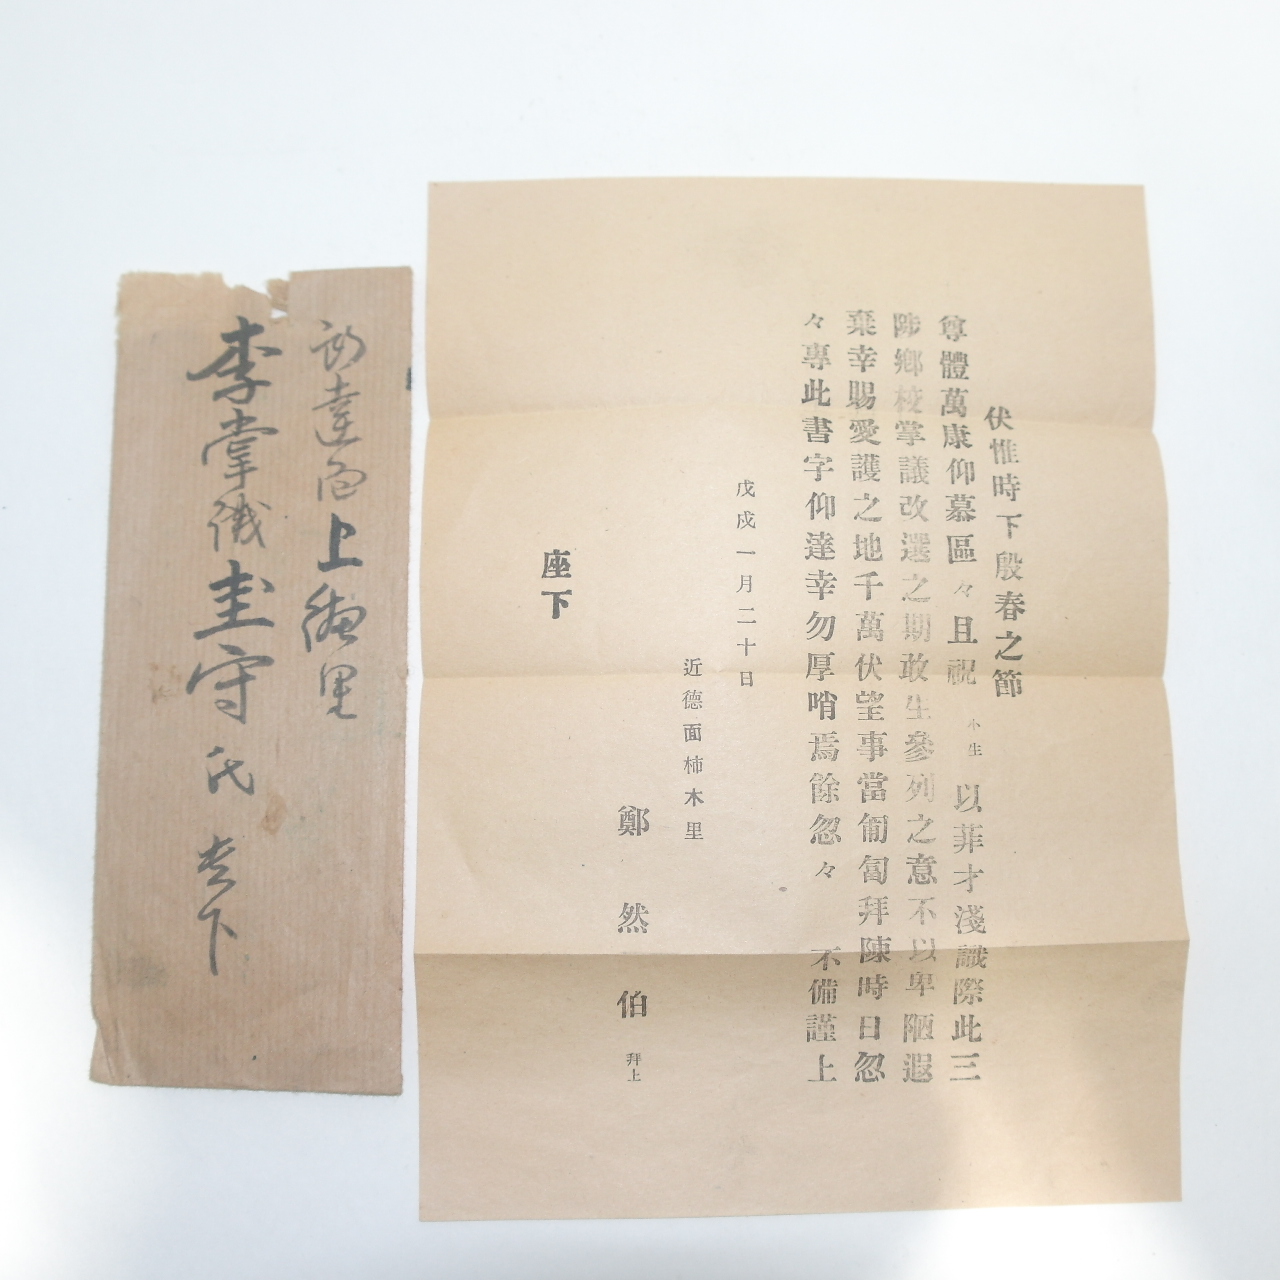 伏惟時下殷春之節
尊體萬康仰慕區々且祝 小生 以菲才淺識際此三
陟鄕校掌議改選之期敢生參列之意不以卑陋遐
棄幸賜愛護之地千萬伏望事當匍匐拜陳時日忽
々專此書字仰達幸勿厚哨焉餘忽々 不備謹上
戊戌一月二十日
近德面柿木里
鄭然伯 拜上
座下
上 里
李掌儀圭守氏 下